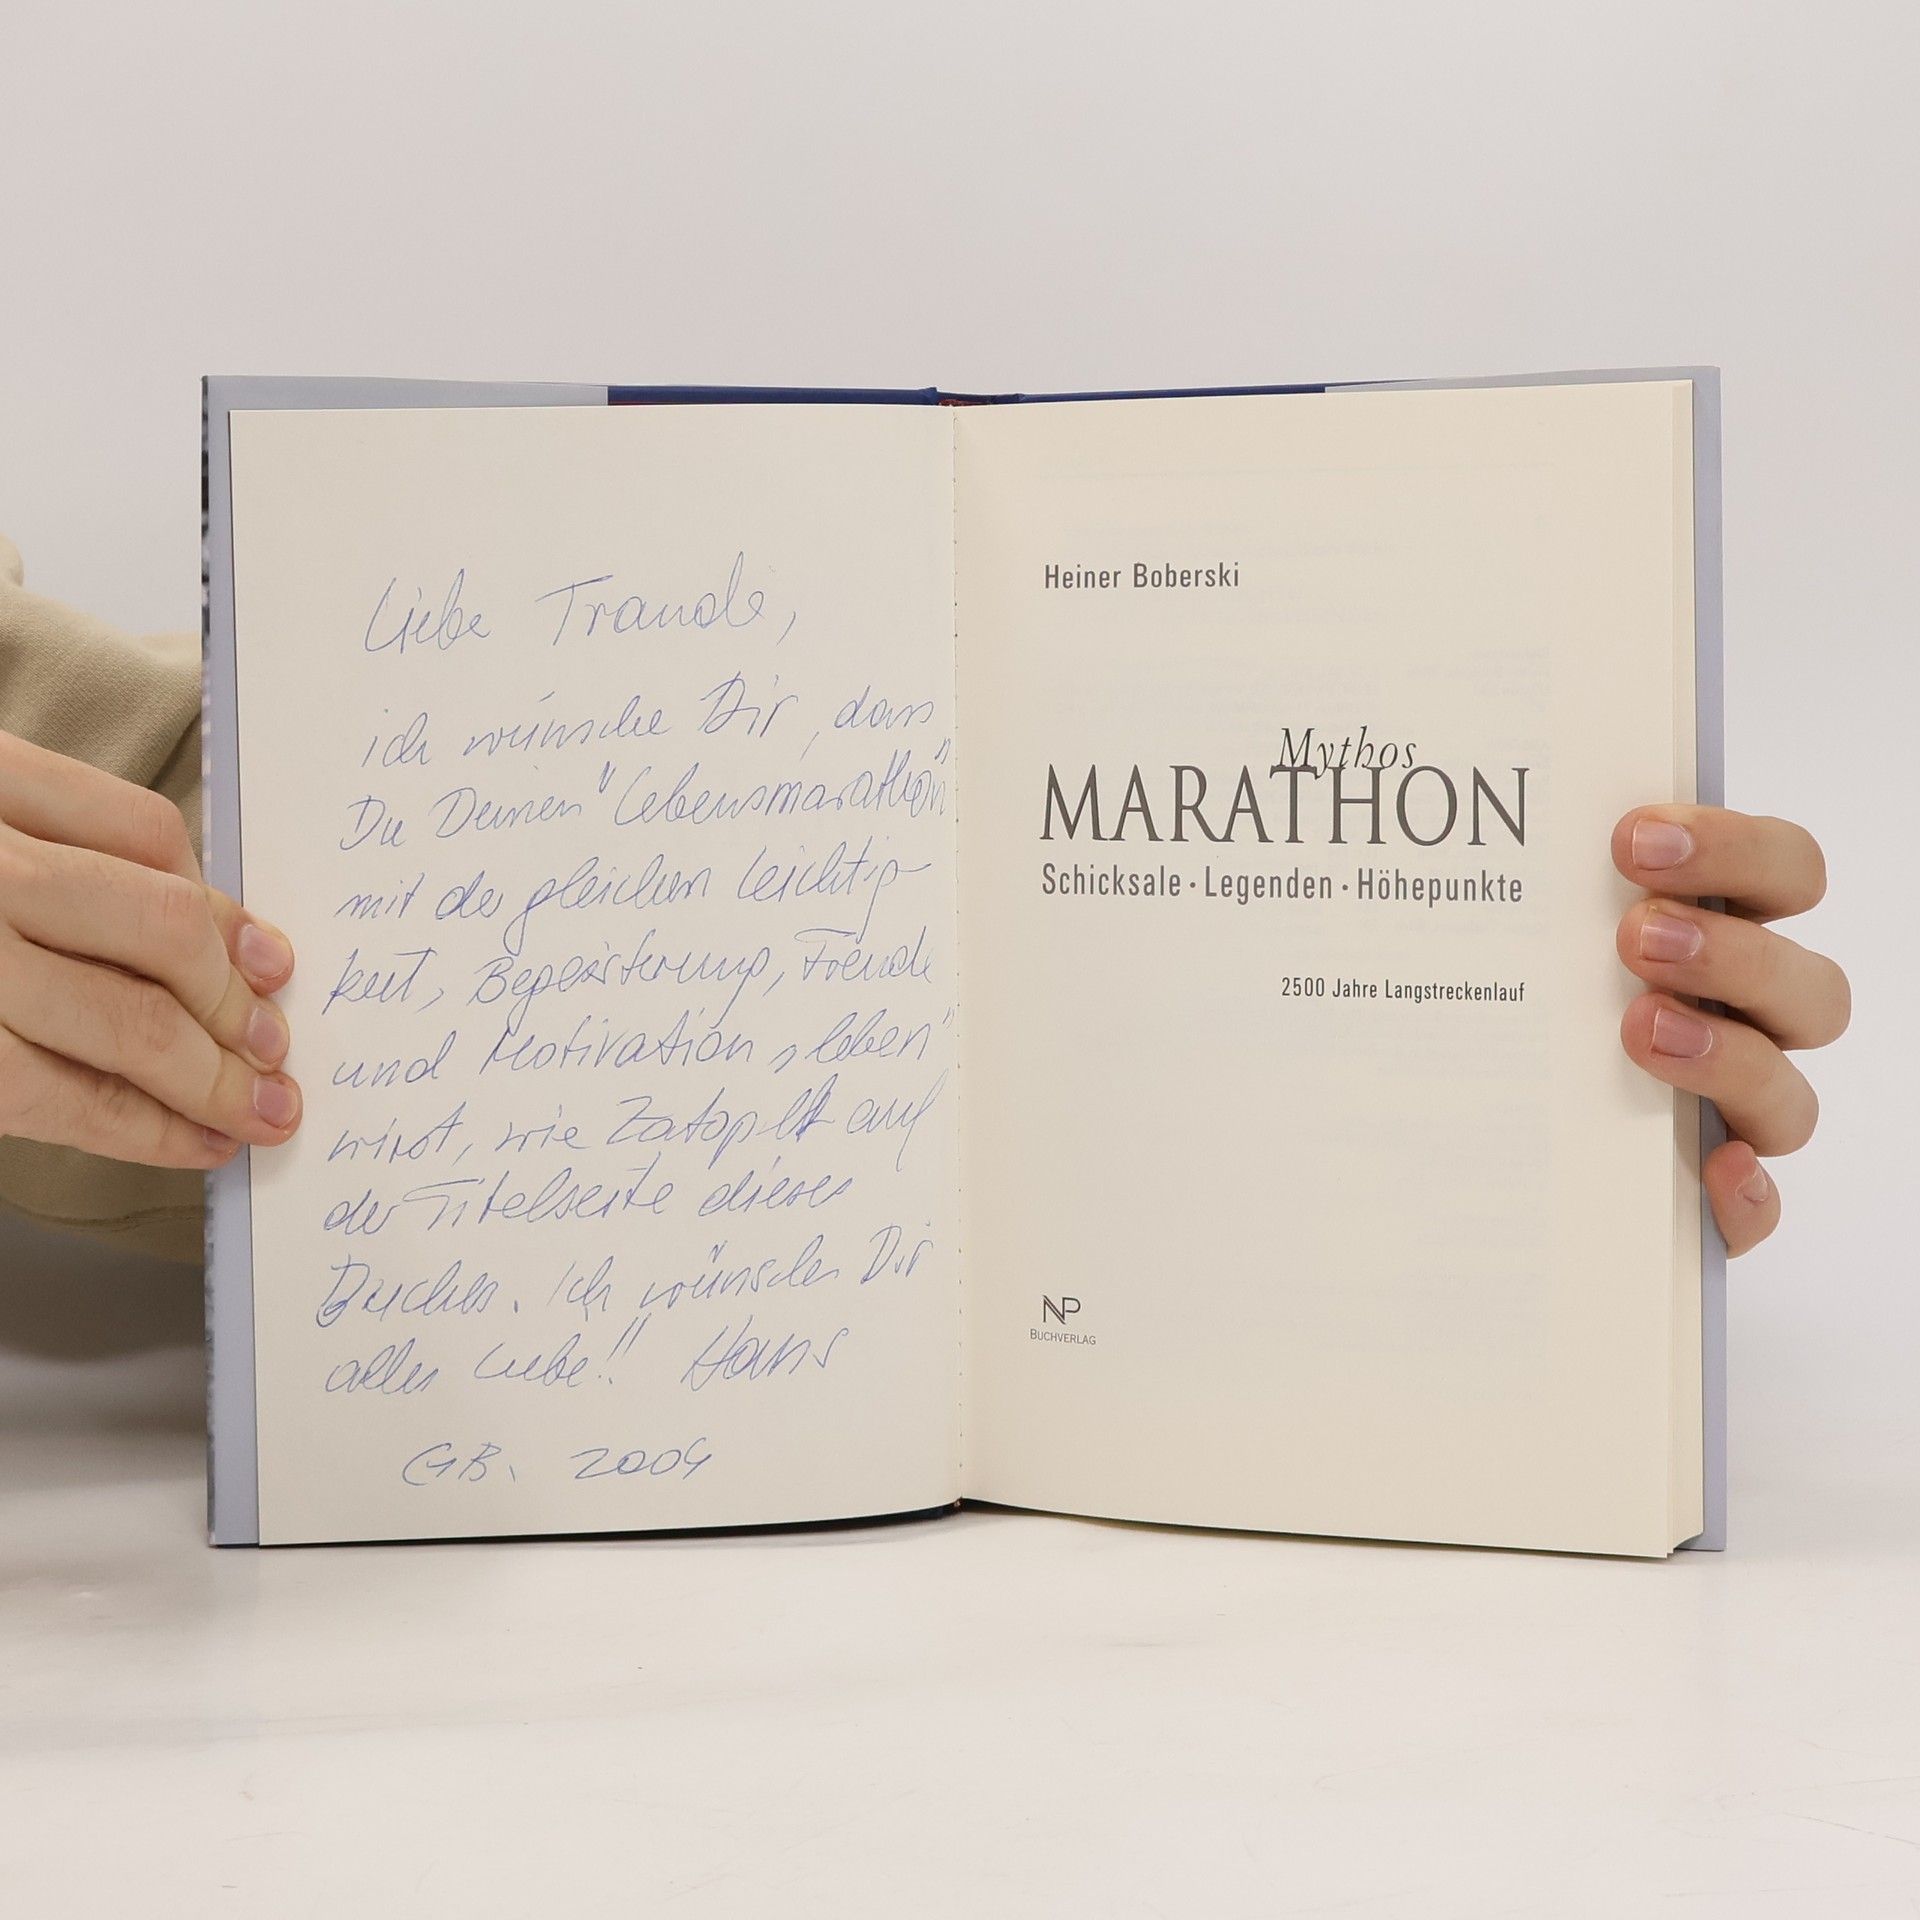 Liebe Traude,
ich wünsche Dir, dass
Du Deinen "Lebensmarathon"
mit der gleichen Leichtig-
keit, Begeisterung, Freude
und Motivation „leben"
wirst, wie Zatopek auf
der Titelseite dieses
Buches. Ich wünsche Dir
alles Liebe!! Hans
GB. 2004
Heiner Boberski
Mythos
MARATHON
Schicksale · Legenden · Höhepunkte
2500 Jahre Langstreckenlauf
NP
BUCHVERLAG